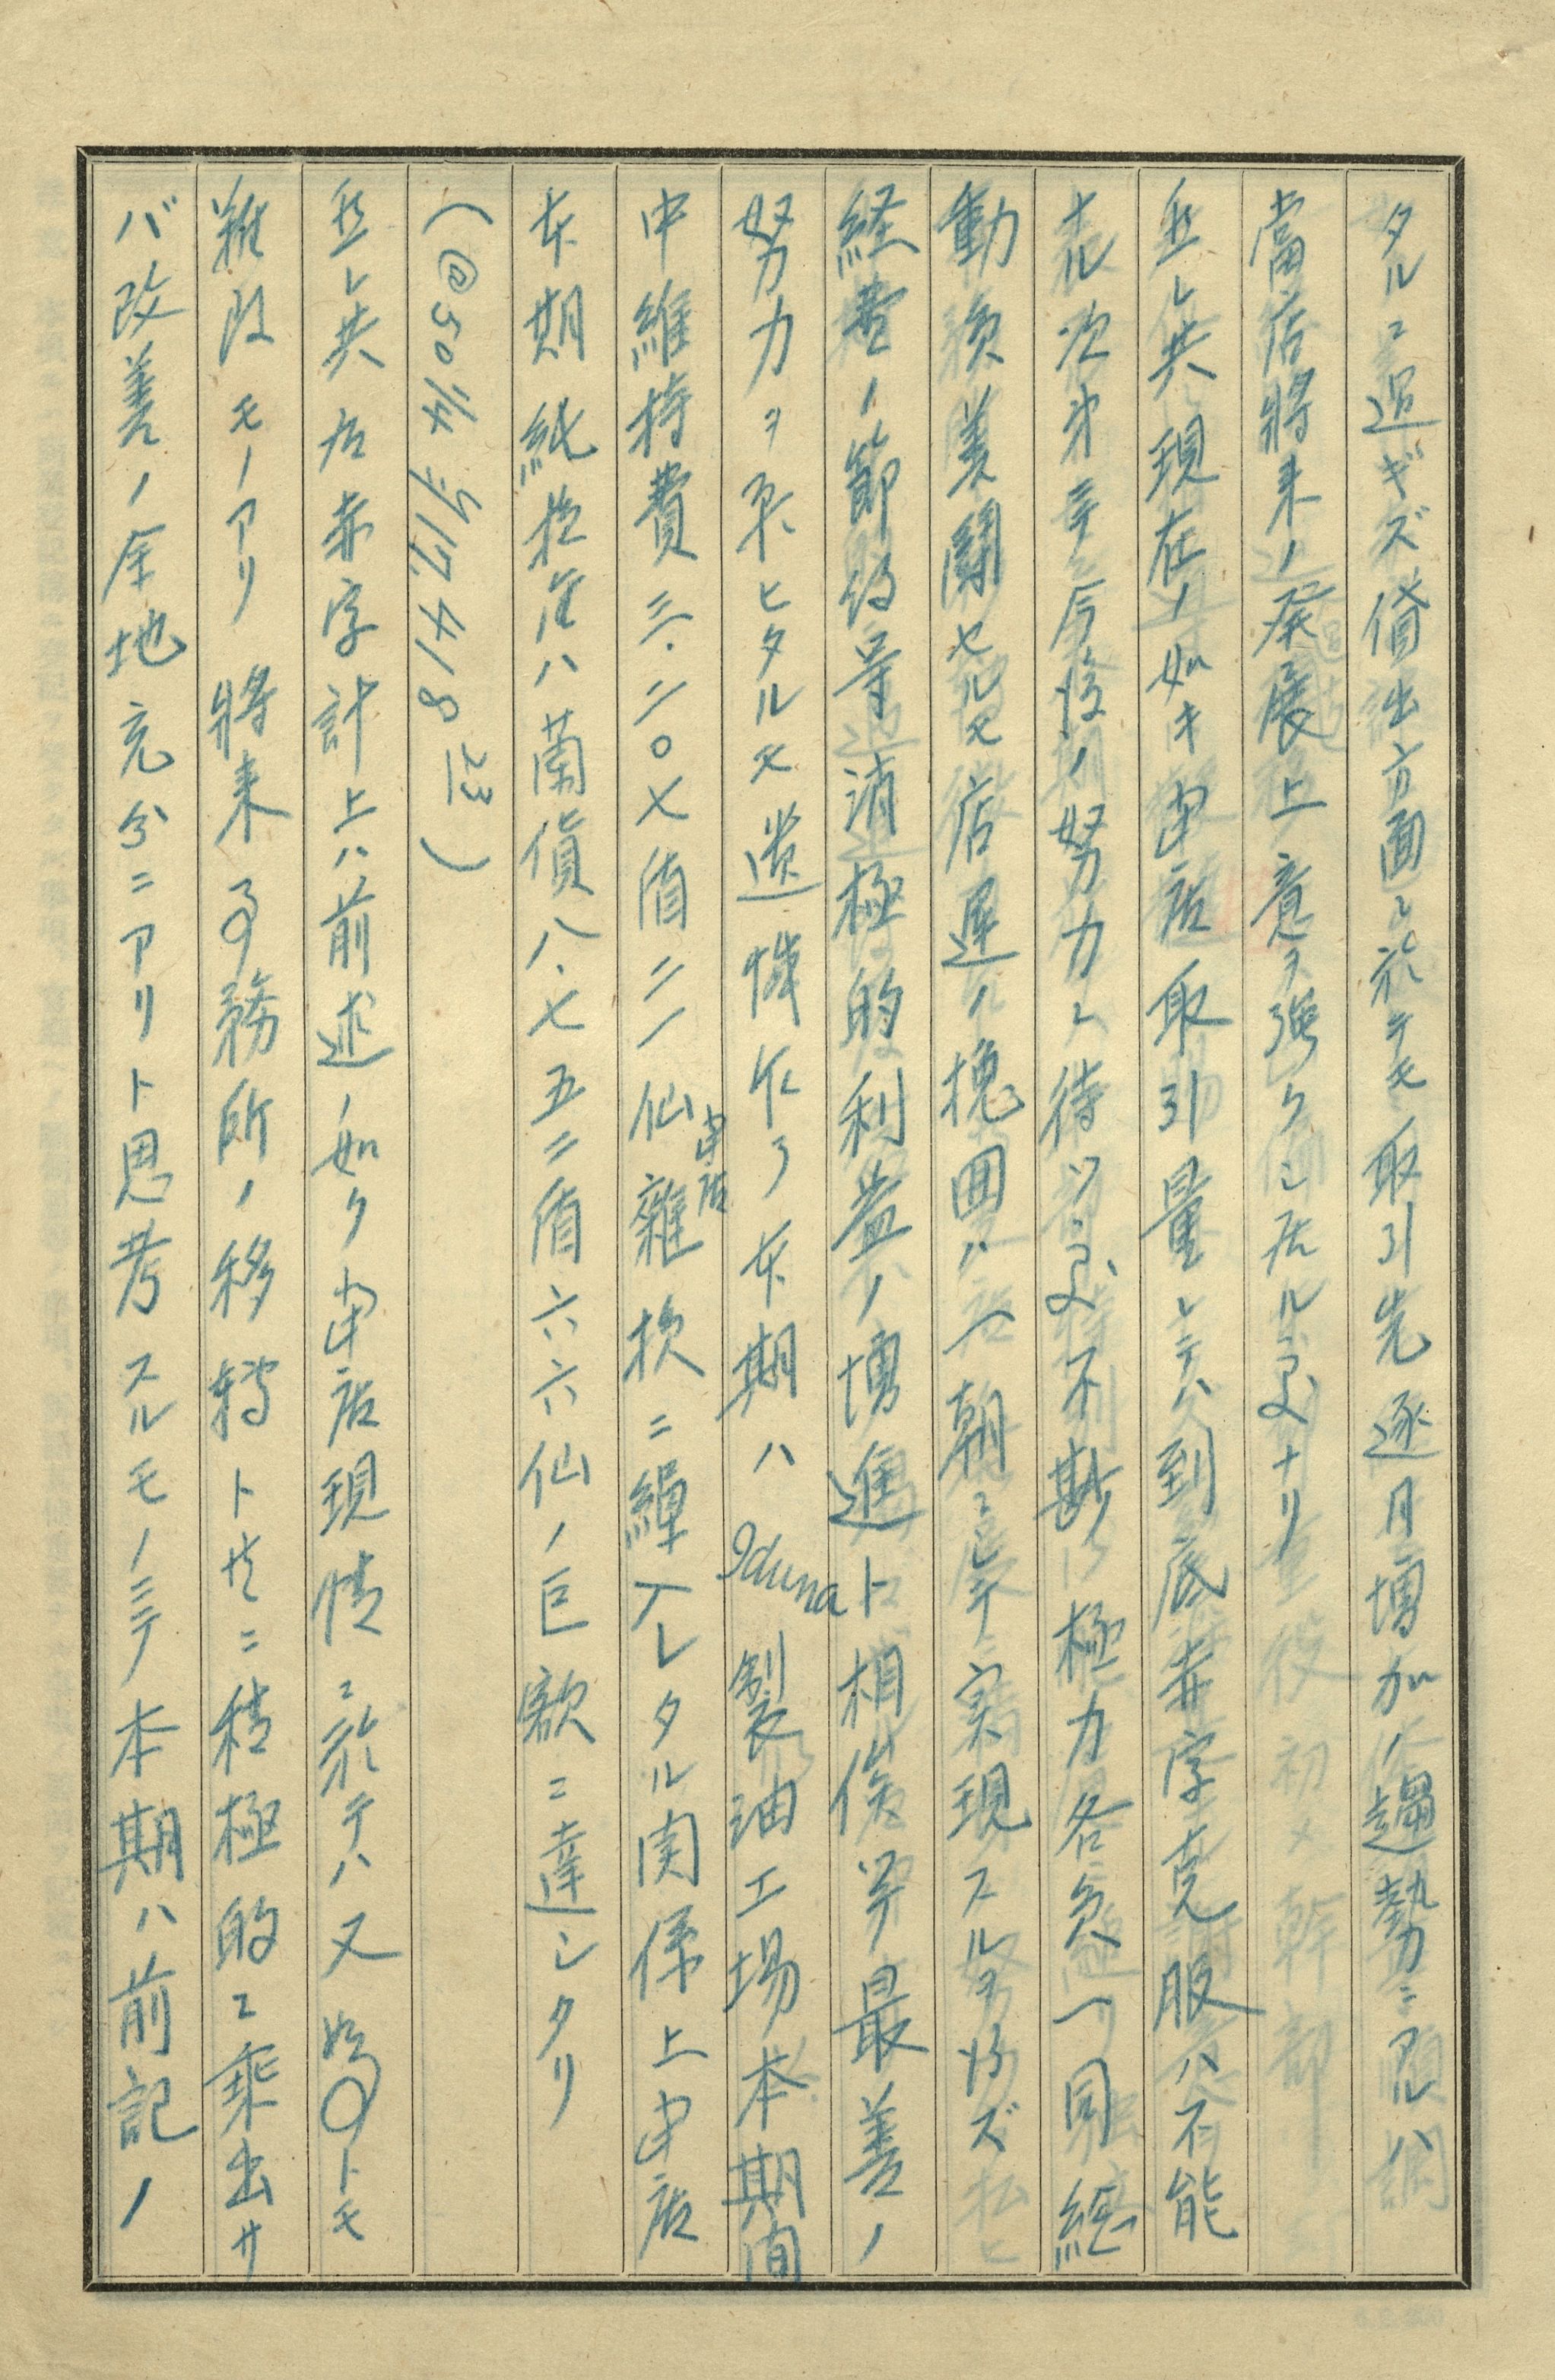 タルニ過ギズ貸出方面ニ於テモ取引先逐月増加ノ趨勢ニアルハ
當店將来ノ発展上意ヲ強クシ居ル処ナリ
然レ共現在ノ如キ当店取引量ニテハ到底赤字克服ハ不能
ナル次第ニテ今後ノ努力ニ待ツ処不尠極力各員一同総
動員善闘セルモ店運ノ挽囬ハ一朝ニシテ実現スルヲ得ズ
経費ノ節約等消極的利益ノ増進ト相俟等最善ノ
努力ヲ果ヒタルモ遺憾乍ラ本期ハIduna製油工場本期間
中維持費三.二〇七盾二一仙当店雑損ニ繰入レタル関係上当店
本期純損失ハ蘭貨八、七五二盾六六仙ノ巨額ニ達シタリ
(@50¼ ¥17,418 23)
然レ共店赤字計上ハ前述ノ如ク当店現情ニ於テハ又如何トモ
難致モノアリ將来事務所ノ移轉ト共ニ積極的ニ乗出サ
バ改善ノ余地充分ニアリト思考スルモノニテ本期ハ前記ノ